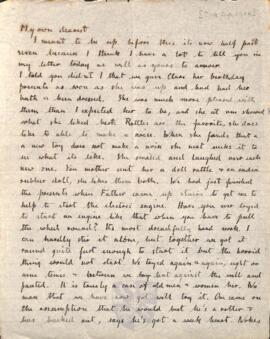 My own dearest
I meant to be up before this its now half past
seven because I think I have a lot to tell you in
my letter today as well as yours to answer.
I told you didn't I that we gave Clare her birthday
presents as soon as she was up and had had her
bath & been dressed. She was much more pleased with
them than I expected her to be and she at once showed
what she liked best. Rattles are the favourite, she does
like to able to make a noise. When she finds that
a new toy does not make a noise she just sucks it to
see what its like. She smiled and laughed over each
new one. Your mother sent her a doll rattle & an indian
rubber doll, she likes them both. We had just finished
the presents when Father came up stairs to get me to
help to start the electric engine. Have you ever tryed
to start an engine like that when you have to pull
the wheel round? Its most dreadfully hard work. I
can hardly stir it alone, but together we got it
round quite fast enough to start it but the horrid
thing would not start. We tryed again & again, eight or
nine times & between we lay back against the wall and
panted. It is surely a case of old men & women here. The
man that we have now got will try it. He came on
the assumption that he would but he's a rotter &
has backed out, says he's got a weak heart. Nobes